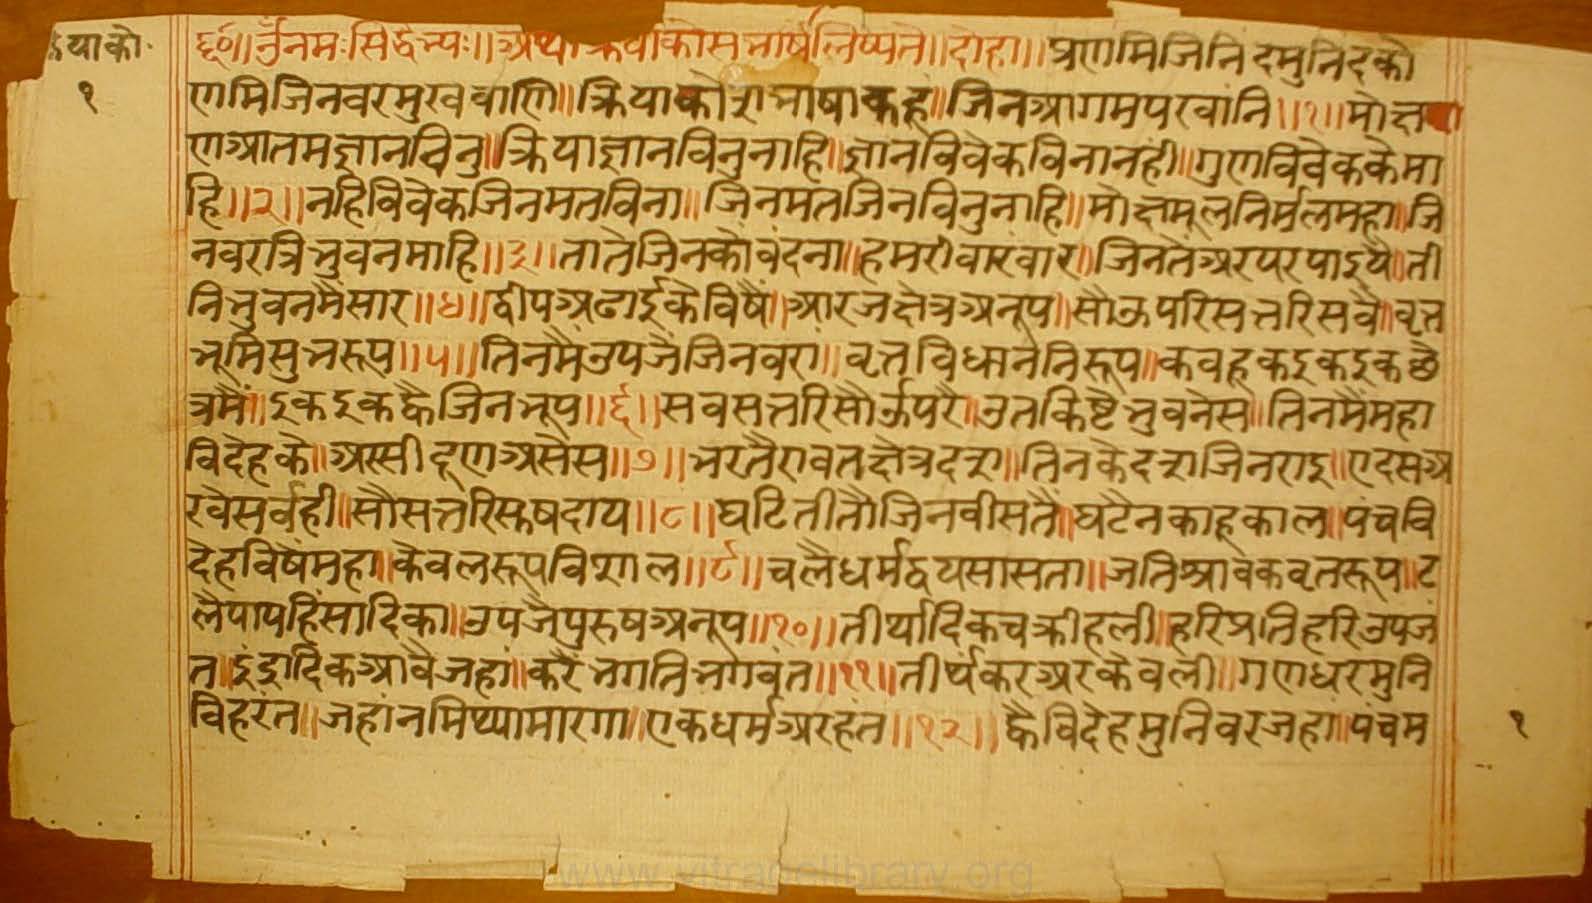 याको
१
६०॥ ॐनमः सिद्धेभ्यः॥ अथ क्रियाकोस भाषा लिष्यते॥ दोहा॥ प्रणमि जिनिंद मुनिंद को
णमि जिनवरमुखवाणि॥ क्रियाकोश भाषा कहूं॥ जिनआगम परवांनि॥१॥ मोक्ष
ण आतमज्ञान विनु॥ क्रिया ज्ञान विनु नाहि॥ ज्ञान विवेक विना नही॥ गुण विवेक के मा
हि॥२॥ नहि विवेक जिनमत विना॥ जिनमत जिन विनु नाहि॥ मोक्षमूल निर्मल महा॥ जि
नवर त्रिभुवन माहि॥३॥ तातै जिनकौ वंदना॥ हमरी वारंवार॥ जिनतै अरपर पाइयै॥ ती
नि भुवनमै सार॥४॥ द्वीप अढाई के विषै॥ आरज क्षेत्र अनूप॥ सौ ऊपरि सत्तरि सवै॥ वृत
भूमि सुभरूप॥५॥ तिनमै उपजै जिनवरा॥ वृत विधान निरूप॥ कवहूक इक इक छै
त्रमै॥ इक इक ह्वै जिनभूप॥६॥ सव सत्तरि सौ ऊपरै॥ उतकिष्टे भुवनेस॥ तिनमै महा
विदेह कै॥ अस्सी दूण असेस॥७॥ भरतैरावत क्षेत्र दश॥ तिनकै दश जिनराइ॥ ए दस अ
रवै सर्वही॥ सौ सत्तरि सुषदाय॥८॥ घटि तौ तौ जिन वीसतै॥ घटै न काहू काल॥ पंच वि
देह विषै महा॥ केवलरूप विशाल॥९॥ चलै धर्म द्वय सासता॥ जति श्रावक वृतरूप॥ ट
लै पाप हिंसादिका॥ उपजै पुरुष अनूप॥१०॥ तीर्थादिक चक्री हली॥ हरि प्रतिहरि उपजं
त॥ इंद्रादिक आवै जहां॥ करै भगति भगवंत॥११॥ तीर्थंकर अर केवली॥ गणधर मुनि
विहरंत॥ जहां न मिथ्या मारगा॥ एक धर्म अरहंत॥१२॥ ह्वै विदेह मुनिवर जहां॥ पंचम
१
www.vitragelibrary.org